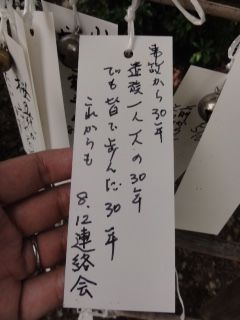 事故から30年
遺族一人一人の30年
でも皆で歩んだ30年
これからも
8.12連絡会